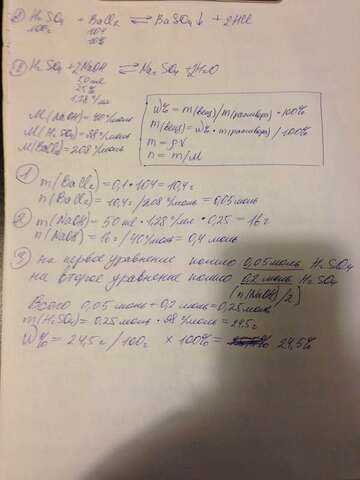 ① H₂SO₄ + BaCl₂ ⇄ BaSO₄↓ + 2HCl
100г 104
10%
② H₂SO₄ + 2NaOH ⇄ Na₂SO₄ + 2H₂O
50ml
25%
1,28 г/мл
M(NaOH) = 40 г/моль
M(H₂SO₄) = 98 г/моль
M(BaCl₂) = 208 г/моль
W% = m(вещ)/m(раствора) · 100%
m(вещ) = W% · m(раствора)/100%
m = ρV
n = m/M
① m(BaCl₂) = 0,1 · 104 = 10,4г
n(BaCl₂) = 10,4г / 208 г/моль = 0,05 моль
② m(NaOH) = 50 ml · 1,28 г/мл · 0,25 = 16г
n(NaOH) = 16г / 40 г/моль = 0,4 моль
③ на первое уравнение пошло 0,05 моль H₂SO₄
на второе уравнение пошло 0,2 моль H₂SO₄
(n(NaOH)/2)
Всего 0,05 моль + 0,2 моль = 0,25 моль
m(H₂SO₄) = 0,25 моль · 98 г/моль = 24,5г
W% = 24,5г / 100г × 100% = 24,5%